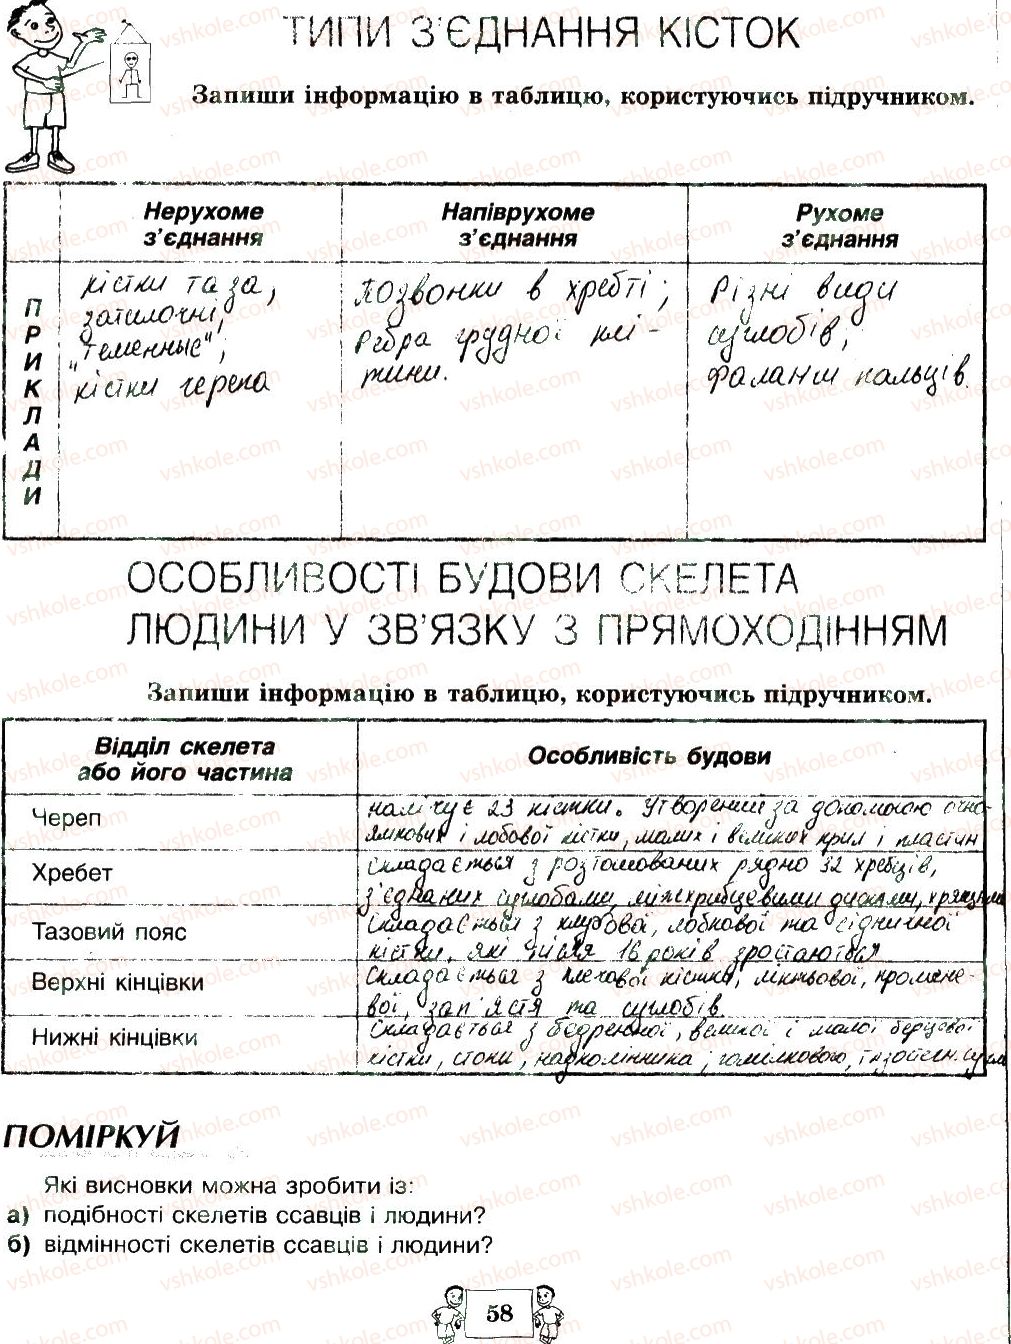 ТИПИ З'ЄДНАННЯ КІСТОК
Запиши інформацію в таблицю, користуючись підручником.
Нерухоме з'єднання
Напіврухоме з'єднання
Рухоме з'єднання
ПРИКЛАДИ
кістки таза,
затилочні,
"теменные";
кістки черепа
Позвонки в хребті;
Ребра грудної клі-
тини.
Різні види
суглобів;
фаланги пальців.
ОСОБЛИВОСТІ БУДОВИ СКЕЛЕТА
ЛЮДИНИ У ЗВ'ЯЗКУ З ПРЯМОХОДІННЯМ
Запиши інформацію в таблицю, користуючись підручником.
Відділ скелета
або його частина
Особливість будови
Череп
налічує 23 кістки. Утворений за допомогою очно-
ямкових і лобової кістки, малих і великих крил і пластин
Хребет
Складається з розташованих рядно 32 хребців,
з'єднаних суглобами, міжхребцевими дисками, хрящами
Тазовий пояс
Складається з клубової, лобкової та сідничної
кістки, які після 16 років зростаються
Верхні кінцівки
Складається з плечової кістки, ліктьової, промене-
вої, зап'ястя та суглобів.
Нижні кінцівки
Складається з бедренної, великої і малої берцової
кістки, стопи, надколінника, гомілковою,
ПОМІРКУЙ
Які висновки можна зробити із:
а) подібності скелетів ссавців і людини?
б) відмінності скелетів ссавців і людини?
58
vshkole.com